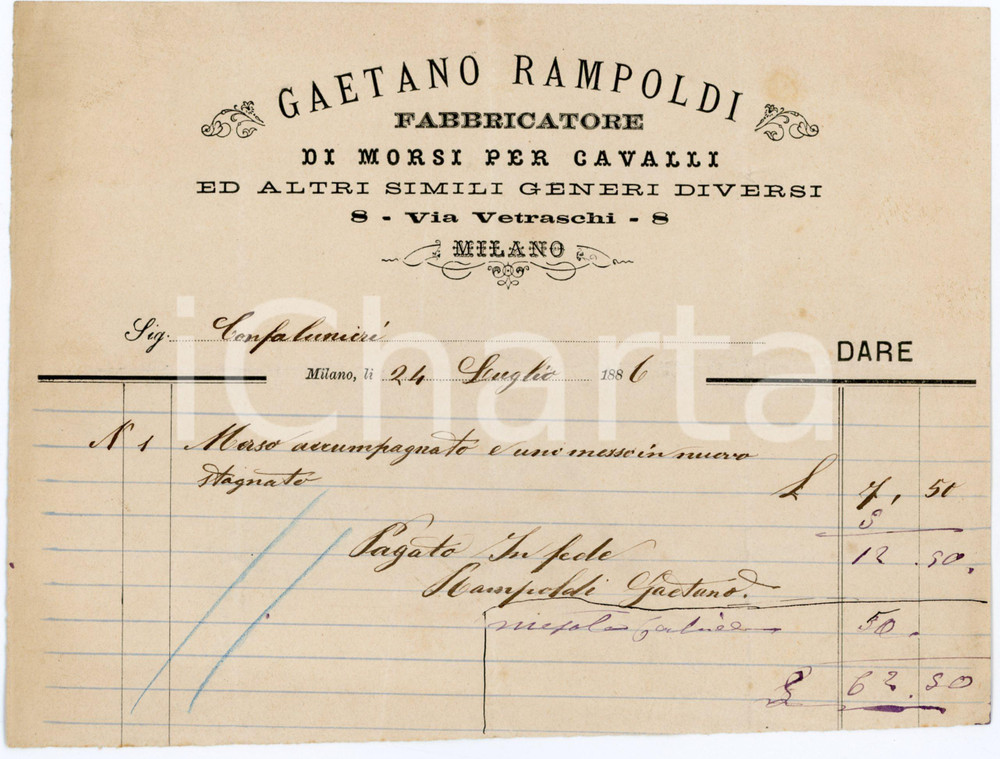 GAETANO RAMPOLDI
FABBRICATORE
DI MORSI PER CAVALLI
ED ALTRI SIMILI GENERI DIVERSI
8 - Via Vetraschi - 8
MILANO
iCharta
Sig. Confalunieri
DARE
Milano, li 24 Luglio 1886
N 1 Morso accumpagnato e uno messo in nuovo
stagnato £ 7, 50
5
Pagato In fede 12.50.
Rampoldi Gaetano.
50.
£ 62.50